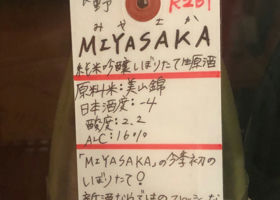 野
R2BY
みやさか
MIYASAKA
純米吟醸しぼりたて生原酒
原料米:美山錦
日本酒度:-4
酸度:2.2
ALC:16%
「MIYASAKA」の今季初の
しぼりたて♡